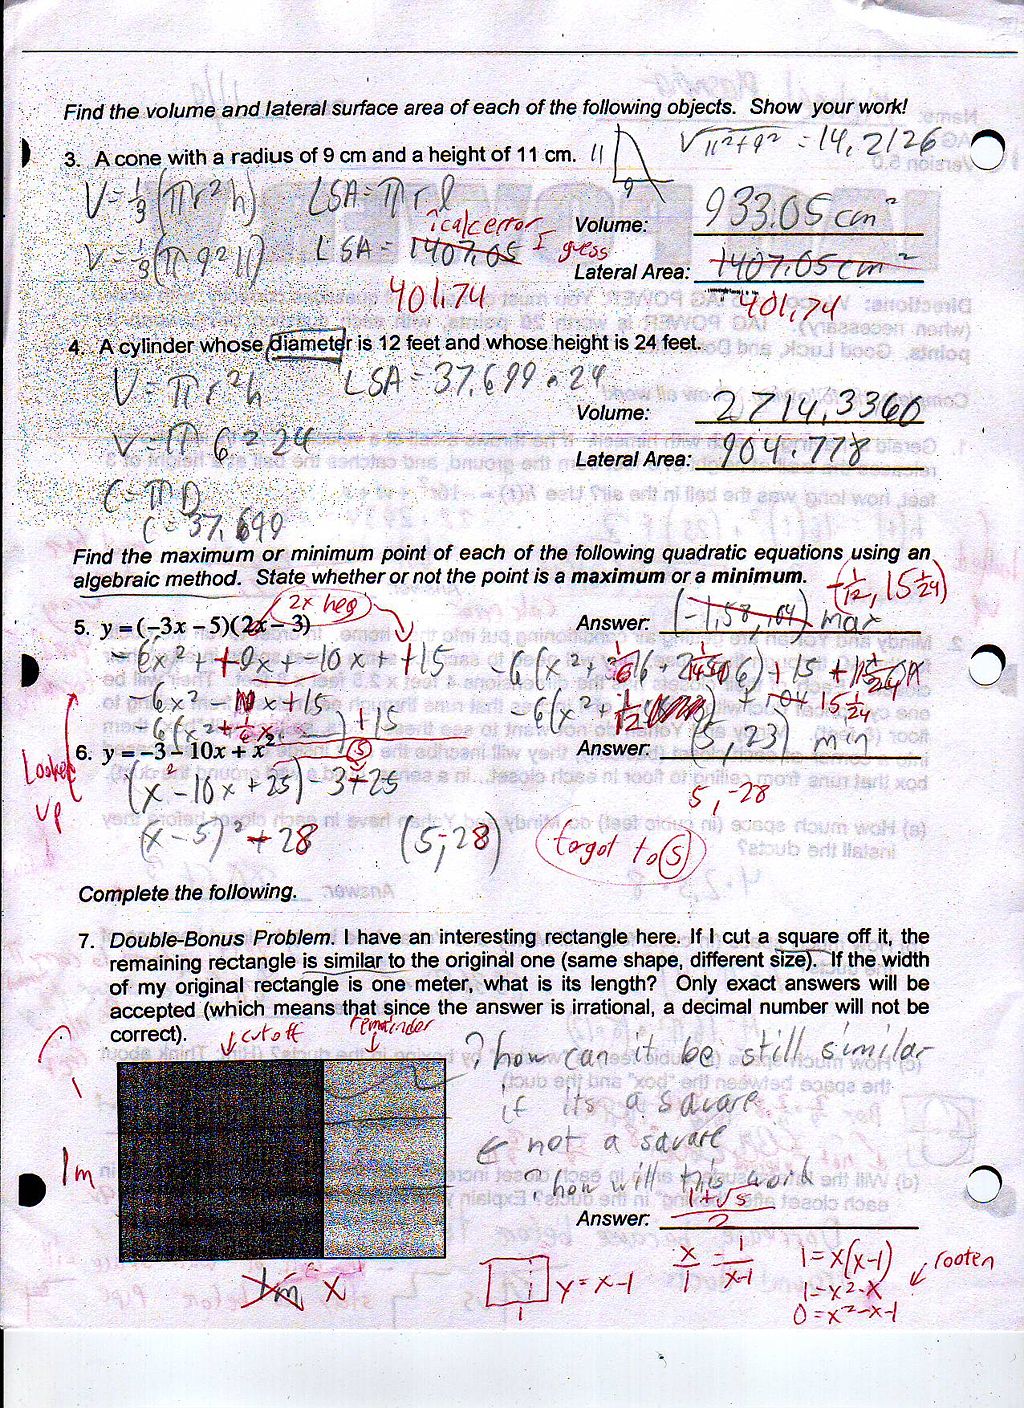 Find the volume and lateral surface area of each of the following objects. Show your work!
3. A cone with a radius of 9 cm and a height of 11 cm.
11
9
√11²+9² = 14,2126
V = 1/3 (πr²h)
LSA = πrl
Volume: 933.05 cm²
V = 1/3 (π 9² 11)
LSA = 1407.05
calc error I guess
401.74
Lateral Area: 1407.05 cm²
401,74
4. A cylinder whose diameter is 12 feet and whose height is 24 feet.
V = πr²h
LSA = 37.699 • 24
Volume: 2714,3360
V = π 6² 24
Lateral Area: 904.778
C = πD
C = 37.699
Find the maximum or minimum point of each of the following quadratic equations using an
algebraic method. State whether or not the point is a maximum or a minimum.
(-1/12, 15 1/24)
2x neg
5. y = (−3x − 5)(2x − 3)
Answer: (-1,58, ,04) max
-6x² + +9x + -10x + +15
-6x² - 1x +15
-6(x² + 1/6x ) +15
15 1/24
6. y = −3 − 10x + x²
Answer: (5, 23) min
5, -28
(x² - 10x + 25) - 3 - 25
(x - 5)² - 28
(5, -28)
forgot to (5)
Looked up
Complete the following.
7. Double-Bonus Problem. I have an interesting rectangle here. If I cut a square off it, the
remaining rectangle is similar to the original one (same shape, different size). If the width
of my original rectangle is one meter, what is its length? Only exact answers will be
accepted (which means that since the answer is irrational, a decimal number will not be
correct).
cut off
remainder
? how can it be still similar
if its a square
not a square
how will this work
1m
Answer: 1+√5/2
1m x
1
y = x-1
x/1 = 1/x-1
1 = x(x-1)
1 = x²-x
0 = x²-x-1